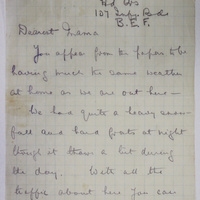 Hd Qrs
107 Infy Bd
B.E.F.
Dearest Mama
You appear from the papers to be
having much the same weather
at home as we are out here —
We had quite a heavy snow-
fall and hard frosts at night
though it thaws a bit during
the day. With all the
traffic about here you can